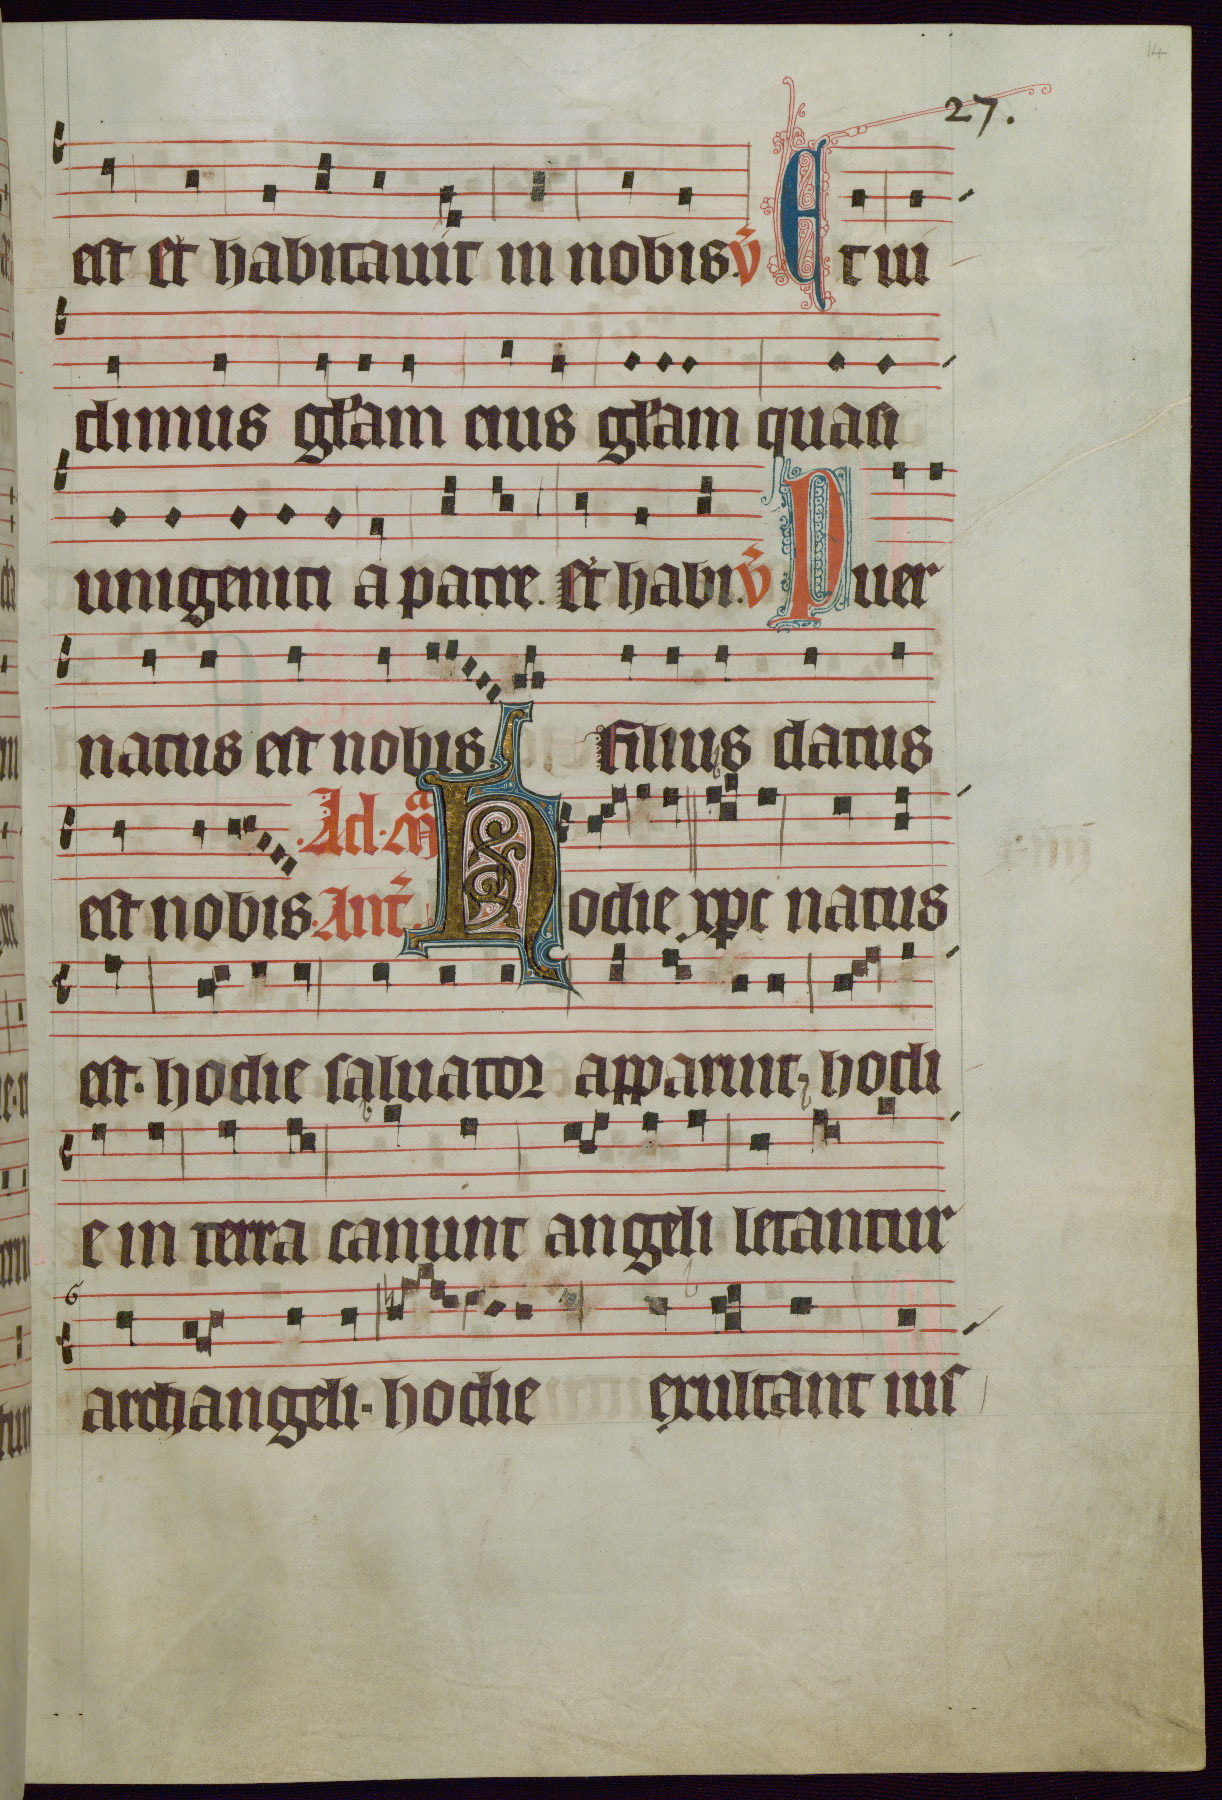 14
27.
est et habitauit in nobis. v̄ Et ui
dimus gl̄am eius gl̄am quasi
unigeniti a patre. Et habi. v̄ Puer
natus est nobis. filius datus
est nobis. Ad. m̄a
Ant̄. Hodie xp̄c natus
est. hodie saluator apparuit, hodi
e in terra canunt angeli letantur
archangeli. hodie exultant ius